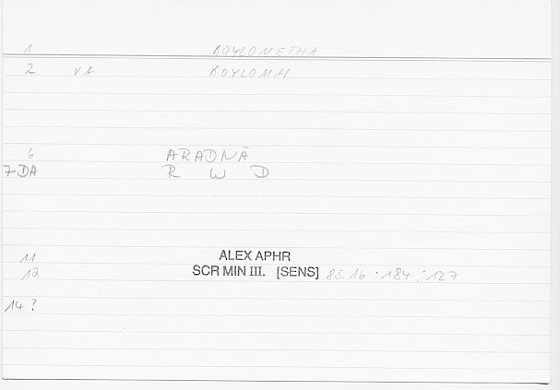 1 BOYLOMETHA
2 VA BOYLOMAI
6 ARADNĀ
7-DA R W D
11 ALEX APHR
12 SCR MIN III. [SENS] 85.16 : 184 : 127
14 ?